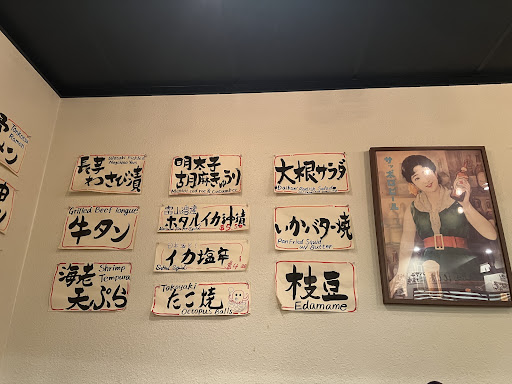 ラーメン
Ramen
長芋
わさび漬
Wasabi Pickled
Nagaimo Yam
牛タン
Grilled Beef tongue
海老
天ぷら
Shrimp
Tempura
明太子
胡麻きゅうり
富山湾産
ホタルイカ沖漬
イカ塩辛
Takoyaki
たこ焼
Octopus Balls
大根サラダ
Daikon Radish Salad
いかバター焼
Pan Fried Squid
w/ Butter
枝豆
Edamame